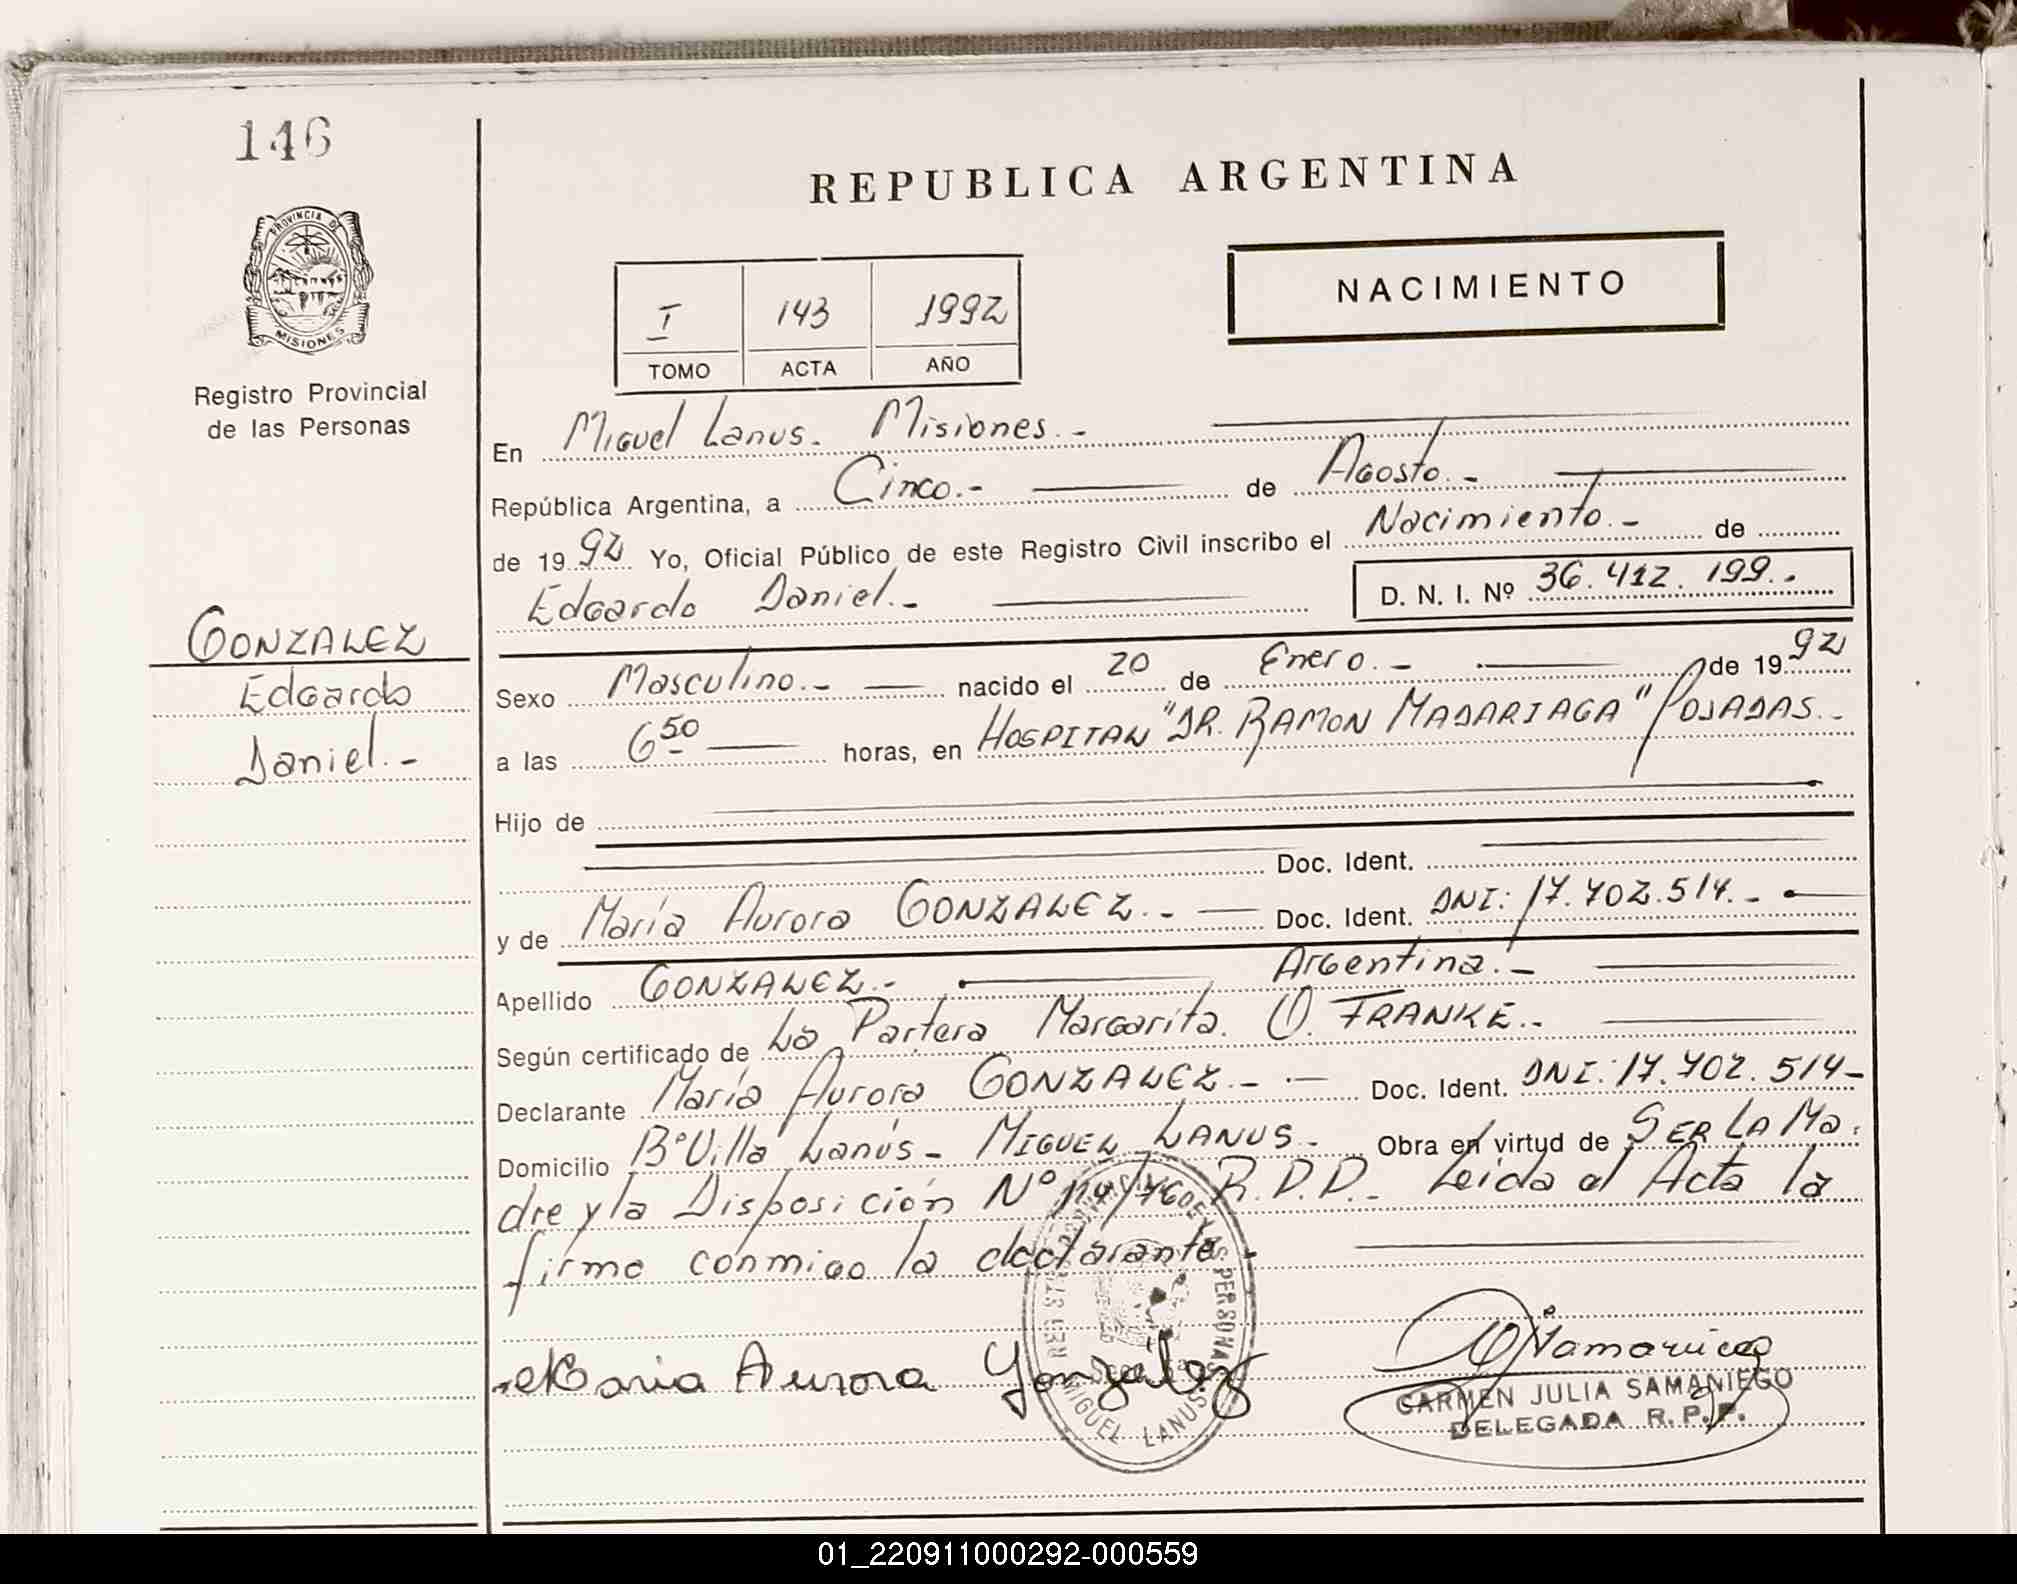 146
REPUBLICA ARGENTINA
PROVINCIA DE
MISIONES
NACIMIENTO
I 143 1992
TOMO ACTA AÑO
Registro Provincial
de las Personas
En Miguel Lanus. Misiones.-
República Argentina, a Cinco.- de Agosto.-
de 1992 Yo, Oficial Público de este Registro Civil inscribo el Nacimiento.- de
Edgardo Daniel.- D. N. I. Nº 36.412.199.-
GONZALEZ
Edgardo
Daniel.-
Sexo Masculino.- nacido el 20 de Enero.- de 1992
a las 6 50 horas, en HOSPITAL "DR. RAMON MADARIAGA" POSADAS.-
Hijo de
Doc. Ident.
y de María Aurora GONZALEZ.- Doc. Ident. DNI: 17.702.514.-
Apellido GONZALEZ.- Argentina.-
Según certificado de La Partera Margarita. O. FRANKE.-
Declarante María Aurora GONZALEZ.- Doc. Ident. DNI: 17.702.514-
Domicilio Bº Villa Lanús - MIGUEL LANUS.- Obra en virtud de SER LA Ma.
dre y la Disposición Nº 114/76 R.D.D.- Leida el Acta la
firma conmigo la declarante.-
Maria Aurora Gonzalez
MIGUEL LANUS
CARMEN JULIA SAMANIEGO
DELEGADA R.P.P.
01_220911000292-000559